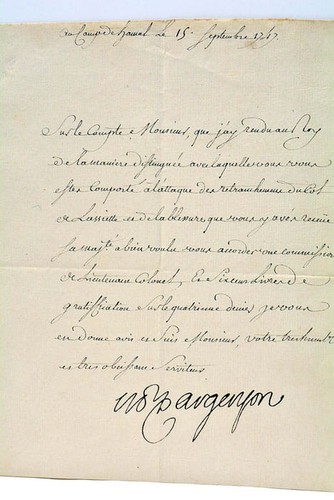 au Camp de hamal Le 15 Septembre 1747.
Sur le Compte, Monsieur, que j'ay rendu au Roy
de la maniere distinguée avec laquelle vous vous
estes comporté a l'attaque des retranchemens du Col
de Lassiette et de la blessure que vous y avez receüe
sa majté a bien voulu vous accorder une commission
de Lieutenant Colonel, Et Six cens Livres de
gratiffication sur le quatrieme denier, je vous
en donne avis et Suis Monsieur, votre tres humble
et tres obeissant Serviteur